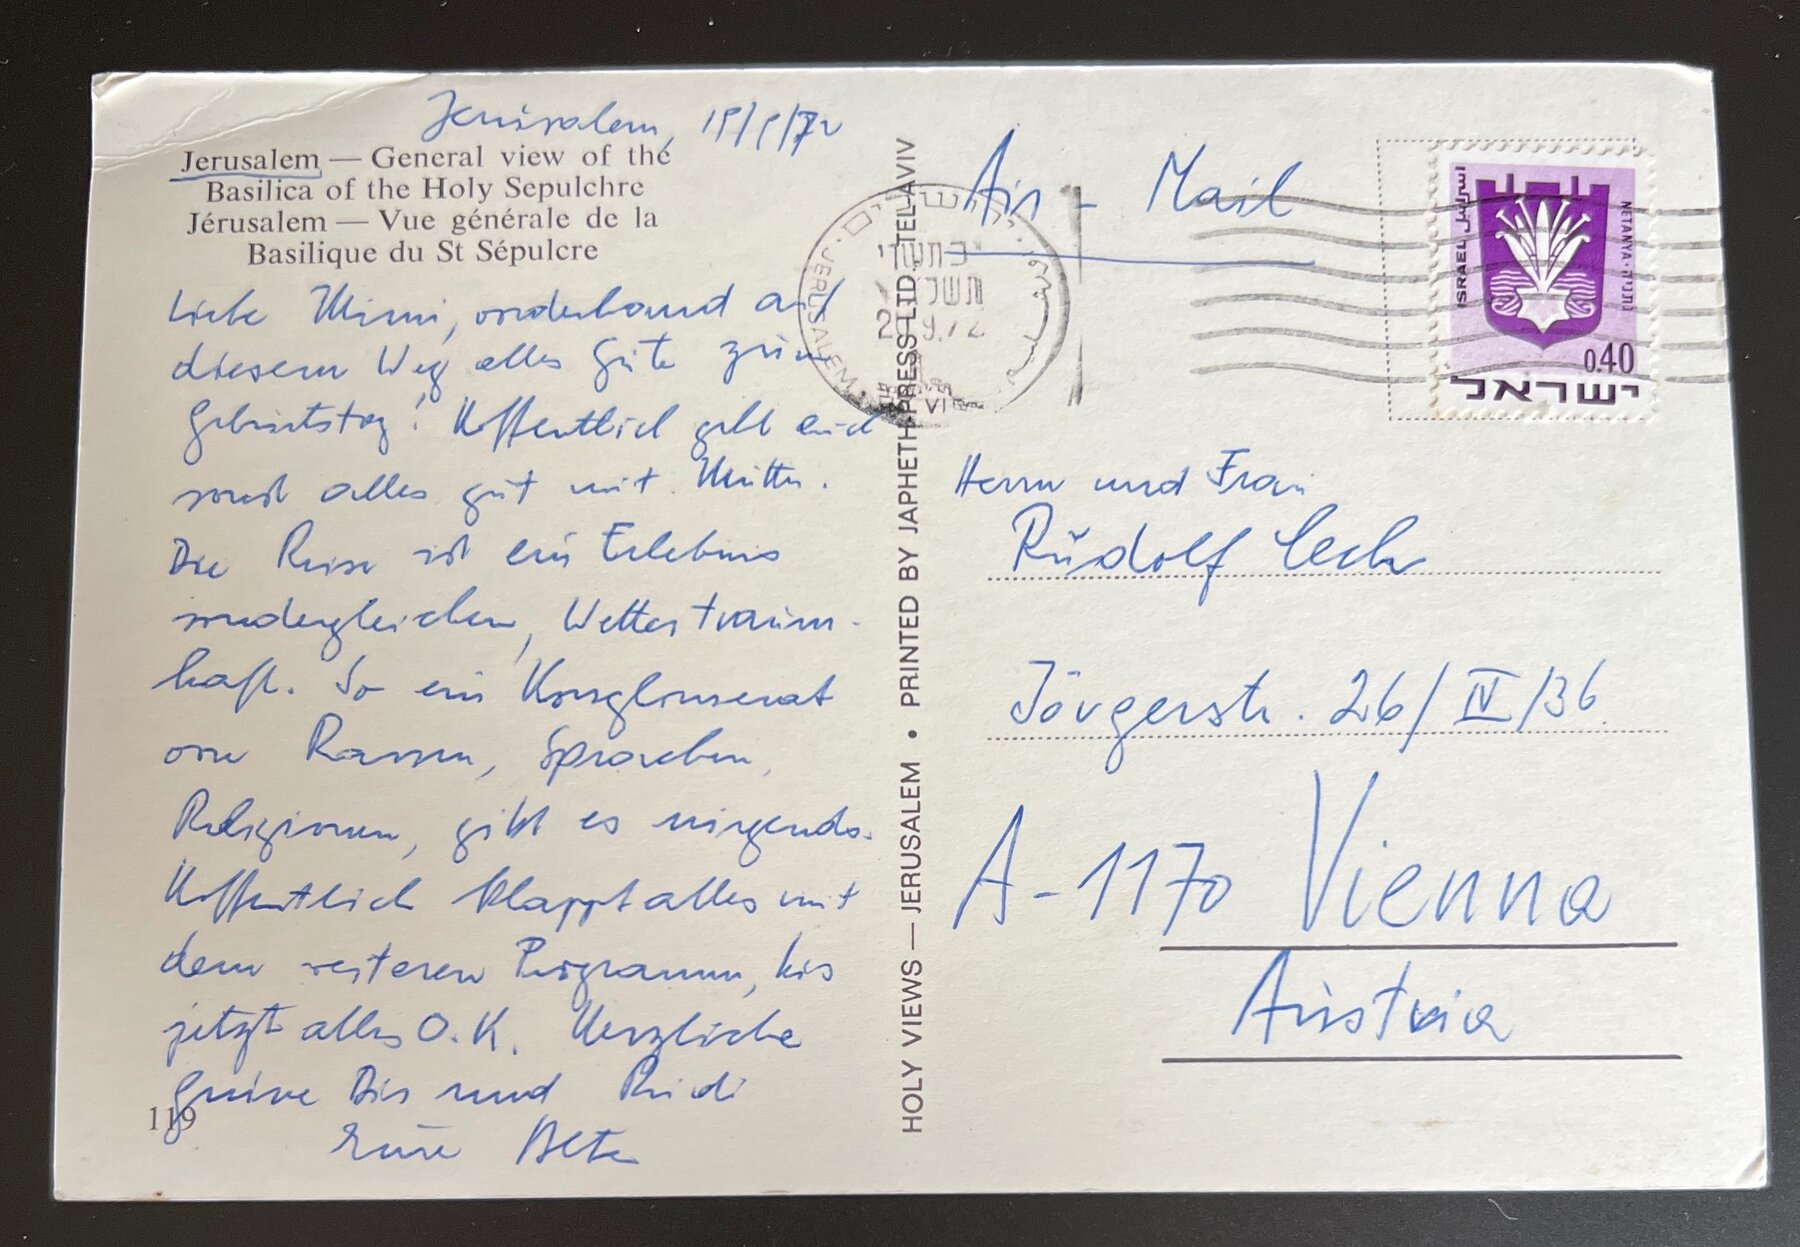 Jerusalem, 19/9/72
Jerusalem — General view of the
Basilica of the Holy Sepulchre
Jérusalem — Vue générale de la
Basilique du St Sépulcre
Liebe Mimi, vorderhand auf
diesem Weg alles Gute zum
Geburtstag! Hoffentlich geht euch
sonst alles gut mit Mutti.
Die Reise ist ein Erlebnis
sondergleichen, Wetter traum-
haft. So ein Konglomerat
von Rassen, Sprachen,
Religionen, gibt es nirgends.
Hoffentlich klappt alles mit
dem weiteren Programm, bis
jetzt alles O.K. Herzliche
Grüsse Dir und Rudi
119
HOLY VIEWS — JERUSALEM • PRINTED BY JAPHETH PRESS LTD. TEL-AVIV
Air - Mail
ירושלים
JERUSALEM
ISRAEL اسرائيل
NETANYA · נתניה
0.40
ישראל
Herrn und Frau
Rudolf
Jörgerstr. 26/IV/36
A-1170 Vienna
Austria